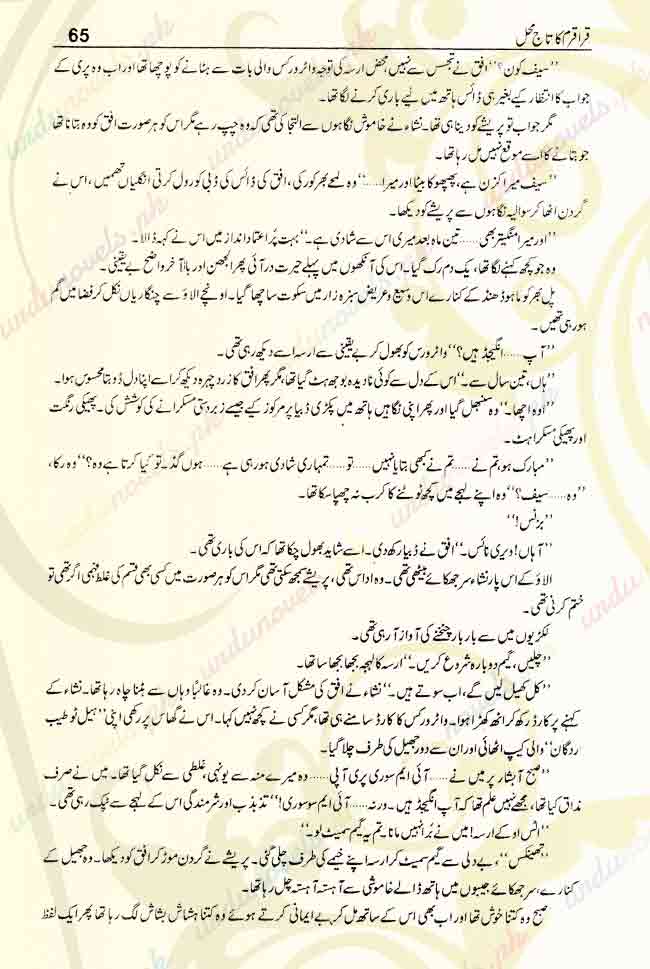 قراقرم کا تاج محل 65
’’سیف کون؟‘‘ افق نے تجسس سے نہیں، محض ارسہ کی توجہ واٹر ورکس والی بات سے ہٹانے کو پوچھا تھا اور اب وہ پری کے
جواب کا انتظار کیے بغیر ہی ڈائس ہاتھ میں لیے باری کرنے لگا تھا۔
مگر جواب تو پریشے کو دینا ہی تھا۔ نشاء نے خاموش نگاہوں سے التجا کی تھی کہ وہ چپ رہے مگر اس کو ہر صورت افق کو وہ بتانا تھا
جو بتانے کا اسے موقع نہیں مل رہا تھا۔
’’سیف میرا کزن ہے، پھپھو کا بیٹا اور میرا......‘‘ وہ لمحے بھر کو رکی، افق کی ڈائس کی ڈبی کو رول کرتی انگلیاں تھمیں، اس نے
گردن اٹھا کر سوالیہ نگاہوں سے پریشے کو دیکھا۔
’’اور میرا منگیتر بھی...... تین ماہ بعد میری اس سے شادی ہے۔‘‘ بہت پُر اعتماد انداز میں اس نے کہہ ڈالا۔
وہ جو کچھ کہنے لگا تھا، یک دم رک گیا۔ اس کی آنکھوں میں پہلے حیرت در آئی پھر الجھن اور بالآخر واضح بے یقینی۔
پل بھر کو ماہوڈھنڈ کے کنارے اس وسیع و عریض سبزہ زار میں سکوت سا چھا گیا۔ اونچے الاؤ سے چنگاریاں نکل کر فضا میں گم
ہو رہی تھیں۔
’’آپ...... انگیجڈ ہیں؟‘‘ واٹر ورس کو بھول کر بے یقینی سے ارسہ اسے دیکھ رہی تھی۔
’’ہاں، تین سال سے۔‘‘ اس کے دل سے کوئی نادیدہ بوجھ ہٹ گیا تھا، مگر پھر افق کا زرد چہرہ دیکھ کر اسے اپنا دل ڈوبتا محسوس ہوا۔
’’اوہ اچھا۔‘‘ وہ سنبھل گیا اور پھر اپنی نگاہیں ہاتھ میں پکڑی ڈبیا پر مرکوز کیے جیسے زبردستی مسکرانے کی کوشش کی۔ پھیکی رنگت
اور پھیکی مسکراہٹ۔
’’مبارک ہو، تم نے...... تم نے کبھی بتایا نہیں...... تو...... تمہاری شادی ہو رہی ہے...... ہوں گڈ۔ تو کیا کرتا ہے وہ؟‘‘ وہ رکا،
’’وہ...... سیف؟‘‘ وہ اپنے لہجے میں کچھ ٹوٹنے کا کرب نہ چھپا سکا تھا۔
’’بزنس!‘‘
’’آہاں! ویری نائس۔‘‘ افق نے ڈبیا رکھ دی۔ اسے شاید بھول چکا تھا کہ اس کی باری تھی۔
الاؤ کے اس پار نشاء سر جھکائے بیٹھی تھی۔ وہ اداس تھی، پریشے سمجھ سکتی تھی مگر اس کو ہر صورت میں کسی بھی قسم کی غلط فہمی اگر تھی تو
ختم کرنی تھی۔
لکڑیوں میں سے بار بار چٹخنے کی آواز آ رہی تھی۔
’’چلیں، گیم دوبارہ شروع کریں۔‘‘ ارسہ کا لہجہ بجھا بجھا سا تھا۔
’’کل کھیل لیں گے، اب سوتے ہیں۔‘‘ نشاء نے افق کی مشکل آسان کر دی۔ وہ غالباً وہاں سے ہٹنا چاہ رہا تھا۔ نشاء کے
کہنے پر کارڈ رکھ کر اٹھ کھڑا ہوا۔ واٹر ورکس کا کارڈ سامنے ہی تھا، مگر کسی نے کچھ نہیں کہا۔ اس نے گھاس پر رکھی اپنی ’’ہیل ٹو طیب
اردگان‘‘ والی کیپ اٹھائی اور ان سے دور جھیل کی طرف چلا گیا۔
’’صبح آبشار پر میں نے...... آئی ایم سوری پری آپی...... وہ میرے منہ سے یونہی، غلطی سے نکل گیا تھا۔ میں نے صرف
مذاق کیا تھا، مجھے نہیں علم تھا کہ آپ انگیجڈ ہیں۔ ورنہ...... آئی ایم سو سوری!‘‘ تذبذب اور شرمندگی اس کے لہجے سے ٹپک رہی تھی۔
’’اٹس او کے ارسہ! میں نے بُرا نہیں مانا۔ تم یہ گیم سمیٹ لو۔‘‘
’’تھینکس‘‘، بے دلی سے گیم سمیٹ کر ارسہ اپنے خیمے کی طرف چلی گئی۔ پریشے نے گردن موڑ کر افق کو دیکھا۔ وہ جھیل کے
کنارے، سر جھکائے جیبوں میں ہاتھ ڈالے خاموشی سے آہستہ آہستہ چل رہا تھا۔
صبح وہ کتنا خوش تھا اور اب بھی اس کے ساتھ مل کر بے ایمانی کرتے ہوئے وہ کتنا ہشاش بشاش لگ رہا تھا پھر ایک لفظ